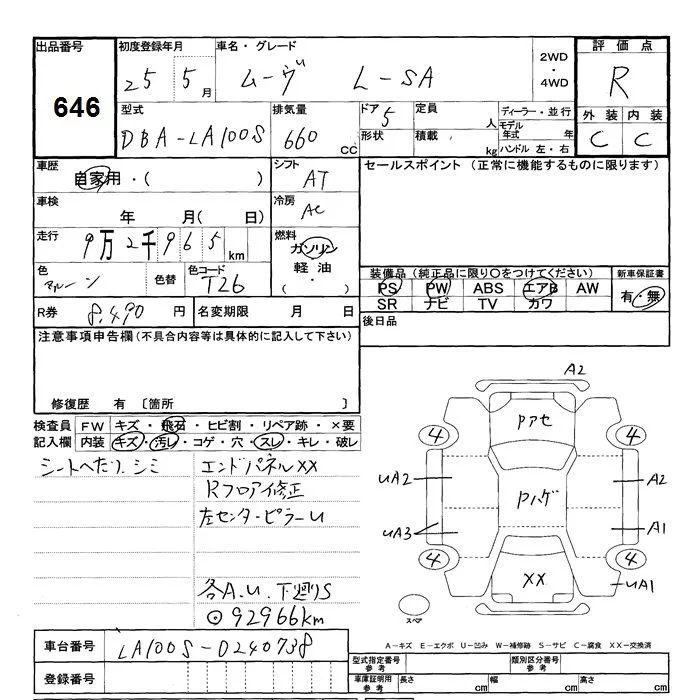 出品番号
646
初度登録年月
25 5月
車名・グレード
ムーヴ L-SA
2WD
・
4WD
評価点
R
外装 内装
C C
型式
DBA-LA100S
排気量
660 CC
ドア 5
形状
定員 人
積載 kg
ディーラー・並行
モデル年式 年
ハンドル 左・右
車歴
自家用・( )
シフト
AT
セールスポイント (正常に機能するものに限ります)
車検
年 月( 日)
冷房
AC
走行
9万2千965km
燃料
ガソリン
軽油
( ・ )
色
マルーン
色替
色コード
T26
装備品(純正品に限り○をつけてください)
PS PW ABS エアB AW
SR ナビ TV カワ
新車保証書
有・無
R券
8,490 円
名変期限 月 日
後日品
注意事項申告欄(不具合内容等は具体的に記入して下さい)
修復歴 有 〔箇所 〕
検査員 FW キズ・飛石・ヒビ割・リペア跡・×要
記入欄 内装 キズ・汚レ・コゲ・穴・スレ・キレ・破レ
シートヘたり、シミ
エンドパネルXX
Rフロア修正
左センターピラーU
各A.U.下廻りS
⊙92966km
A2
Pアセ
4 4
UA2
A2
Pハゲ
UA3
A1
4 4
XX
UA1
スペア
A-キズ E-エクボ U-凹み W-補修跡 S-サビ C-腐食 XX-交換済
車台番号
LA100S-0240738
登録番号
型式指定番号
参考
類別区分番号
参考
車庫証明用
参考
長さ cm
幅 cm
高さ cm